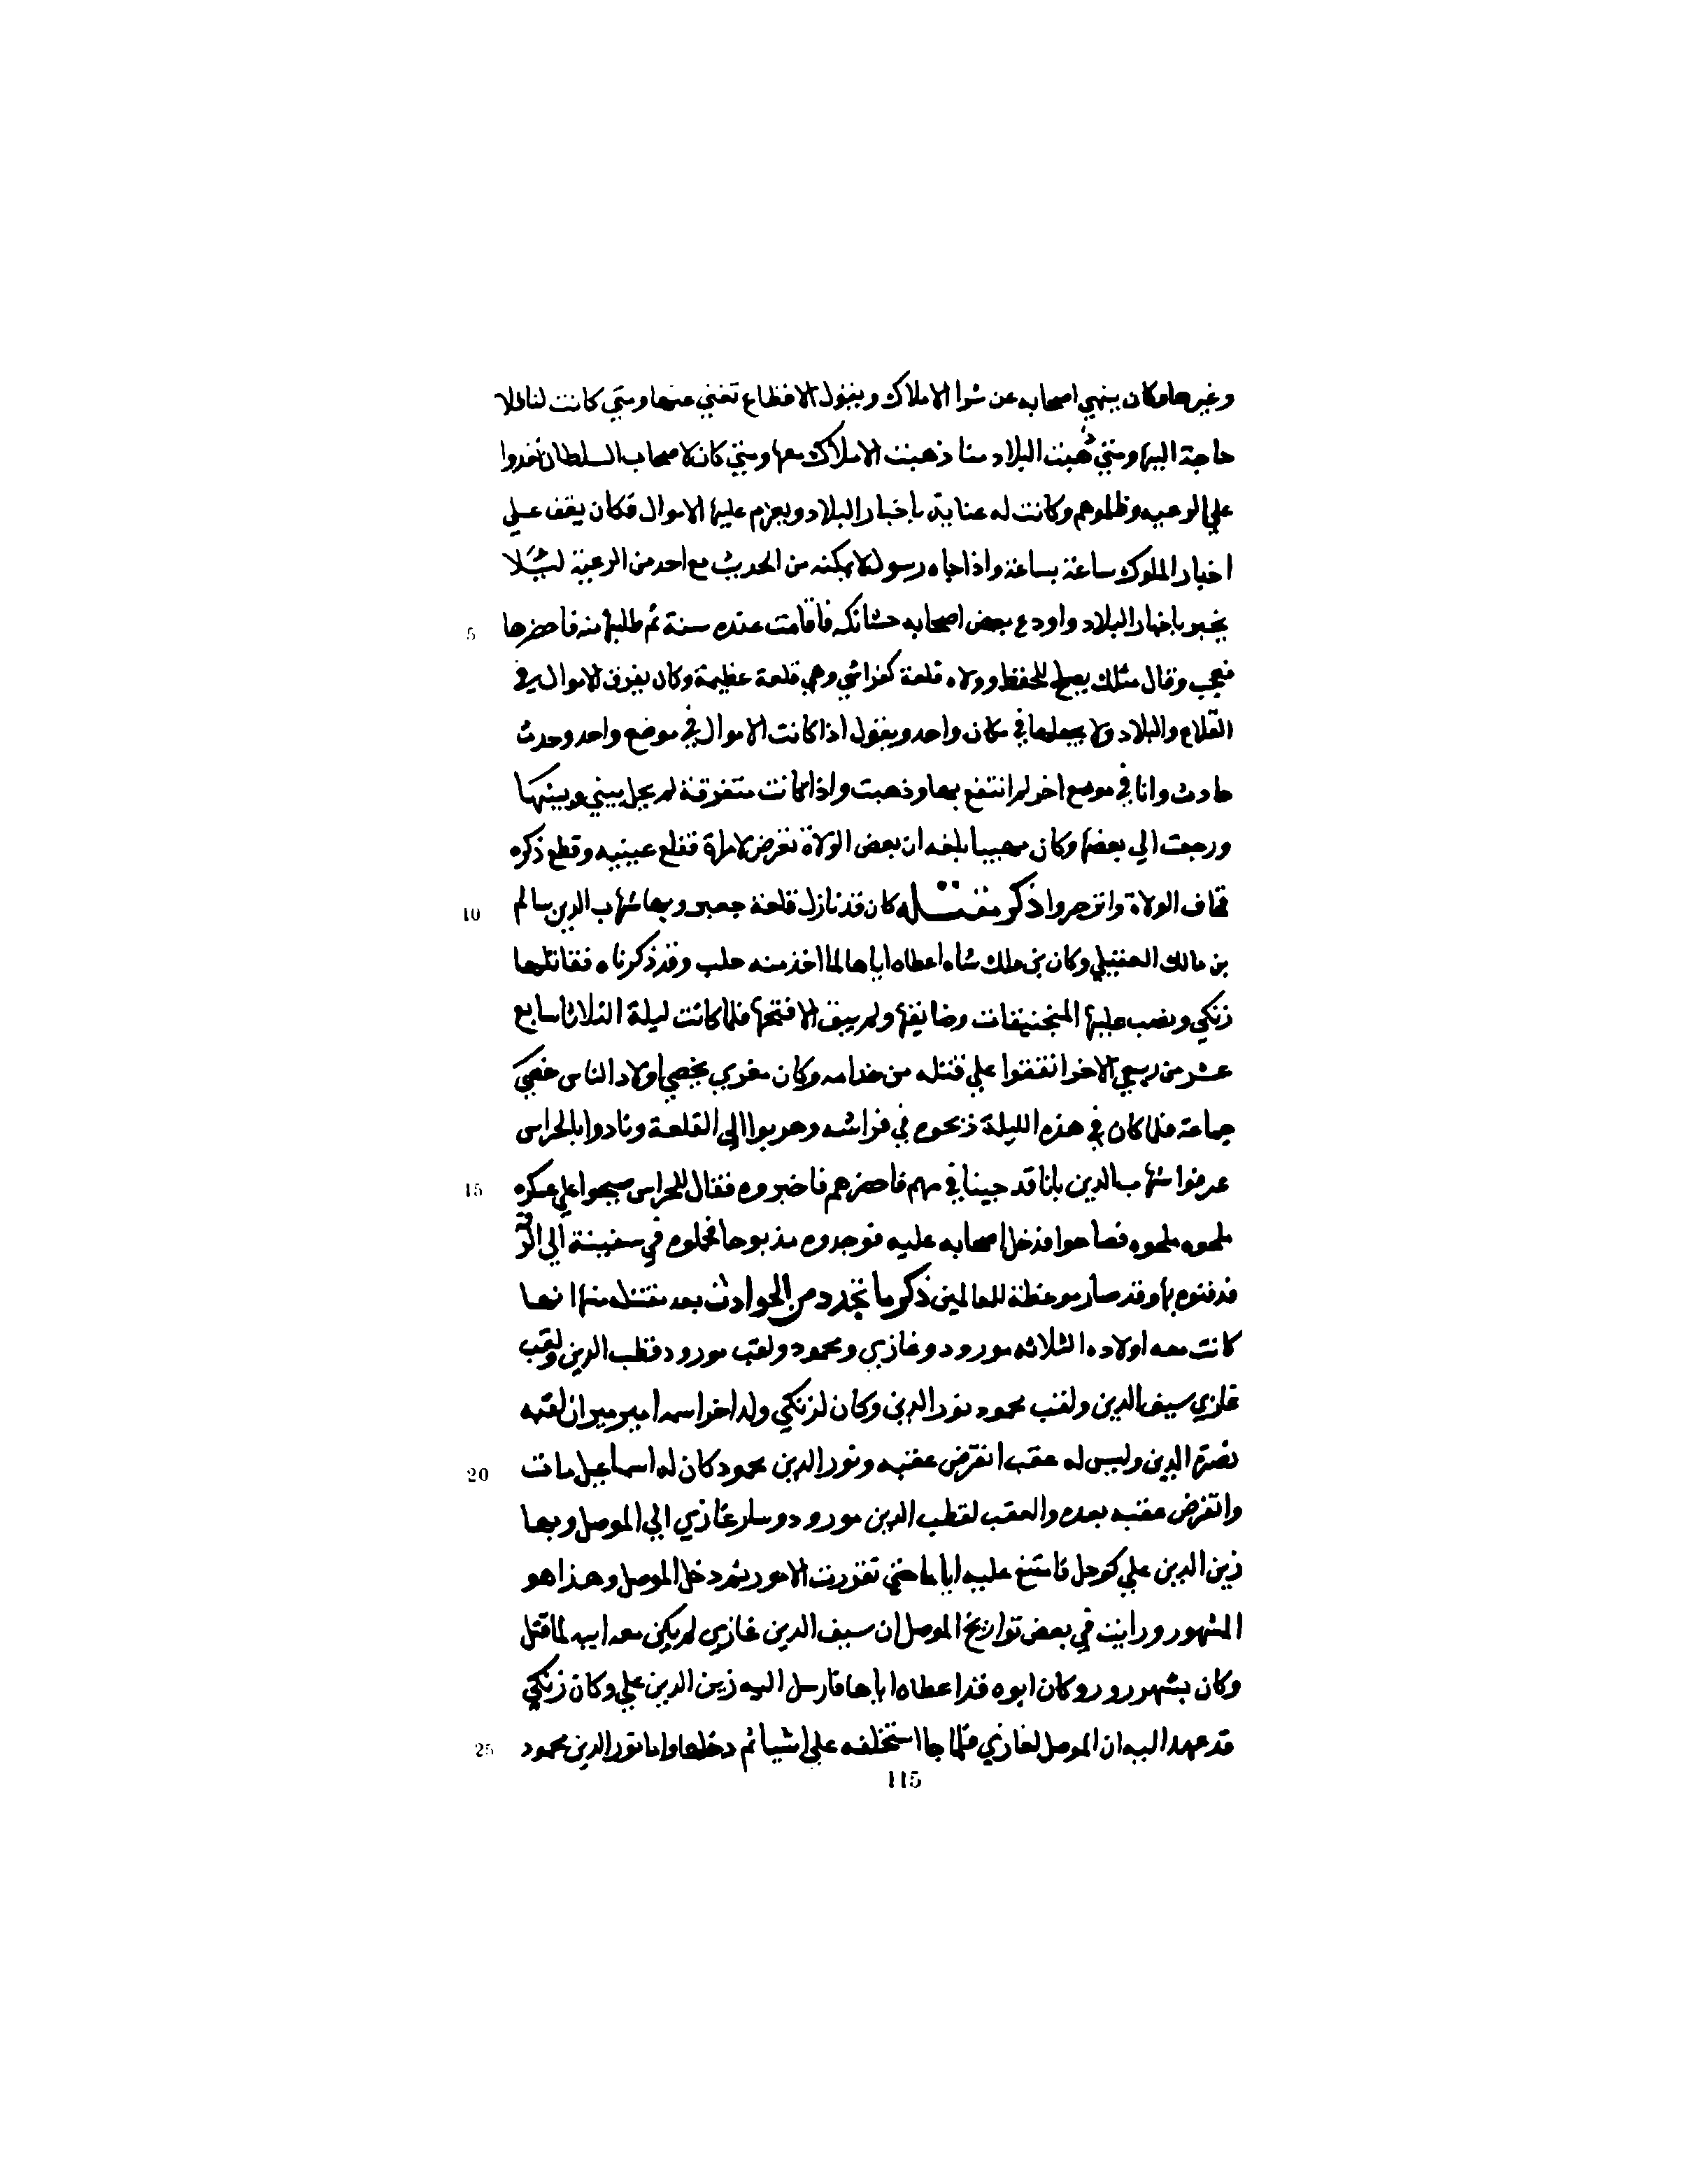 وغيرها وكان ينهي اصحابه عن شرا الاملاك ويقول الاقطاع تغني عنها ومتي كانت لنا فلا
حاجة اليها ومتي ذهبت البلاد منا ذهبت الاملاك معها ومتي كان لاصحاب السلطان تعدوا
علي الرعيه وظلموهم وكانت له عناية باخبار البلاد ويعزم عليها الاموال فكان يقف علي
اخبار الملوك ساعة بساعة واذا جاه رسول لا يمكنه من الحديث مع احد من الرعية ليلا
5 يخبر باخبار البلاد واودع بعض اصحابه خشكانكه فاقامت عنده سنة ثم طلبها منه فاحضرها
فعجب وقال مثلك يصلح للحفظ وولاه قلعة كفراشي وهي قلعة عظيمة وكان يفرق الاموال في
القلاع والبلاد ولا يجعلها في مكان واحد ويقول اذا كانت الاموال في موضع واحد وحدث
حادث وانا في موضع اخر لم انتفع بها وذهبت واذا كانت متفرقة لم يحل بيني وبينها
ورجعت الي بعضها وكان مهيبا بلغه ان بعض الولاة تعرض لامراة فقلع عينيه وقطع ذكره
10 فخاف الولاة وانزجروا ذكر مقتله كان قد نازل قلعة جعبر وبها شهاب الدين سالم
بن مالك العقيلي وكان بن ملك شاه اعطاه اياها لما اخذ منه حلب وقد ذكرناه فقاتلها
زنكي ونصب عليها المنجنيقات وضايقها ولم يبق الا فتحها فلما كانت ليلة الثلاثا سابع
عشر من ربيع الاخر اتفقوا علي قتله من خدامه وكان مغري بخصي اولاد الناس خصي
جماعة فلما كان في هذه الليلة ذبحوه في فراشه وهربوا الي القلعة ونادوا بالحراس
15 عرفوا شهاب الدين بانا قد جينا في مهم فاحضرهم فاخبروه فقال للحراس صيحوا علي عسكره
ملحوه ملحوه فصاحوا فدخل اصحابه عليه فوجدوه مذبوحا فحملوه في سفينة الي الرقة
فدفنوه بها وقد صار موعظة للعالمين ذكر ما تجدد من الحوادث بعد مقتله منها انها
كانت معه اولاده الثلاثه مورود وغازي ومحمود ولقب مورود قطب الدين ولقب
غازي سيف الدين ولقب محمود نور الدين وكان لزنكي ولد اخر اسمه امير ميران لقبه
20 نصرة الدين وليس له عقب انقرض عقبه ونور الدين محمود كان له اسماعيل مات
وانقرض عقبه بعده والعقب لقطب الدين مورود وسار غازي الي الموصل وبها
زين الدين علي كوجل فامتنع عليه اياما حتي تقررت الامور ثم دخل الموصل وهذا هو
المشهور ورايت في بعض تواريخ الموصل ان سيف الدين غازي لم يكن مع ابيه لما قتل
وكان بشهرورو وكان ابوه قد اعطاه اياها فارسل اليه زين الدين علي وكان زنكي
25 قد عهد اليه ان الموصل لغازي فلما جا استحلفه علي اشيا ثم دخلها واما نور الدين محمود
115